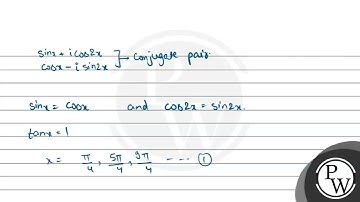 sinx + i cos2x
cosx - i sin2x } → conjugate pair.
sinx = cosx and cos2x = sin2x.
tanx = 1
x = π/4, 5π/4, 9π/4 ---- ①
PW